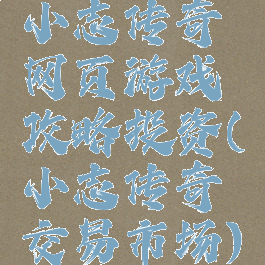 小志传奇
网页游戏
攻略投资(
小志传奇
交易市场)